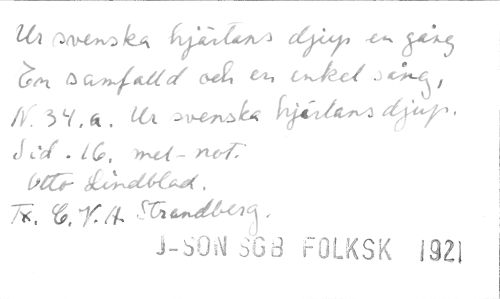 Ur svenska hjärtans djup en gång
En samfälld och en enkel sång,
N. 34.a. Ur svenska hjärtans djup.
Sid. 16. mel-not.
Otto Lindblad.
Tx. C. V. A. Strandberg.
J-SON SGB FOLKSK 1921